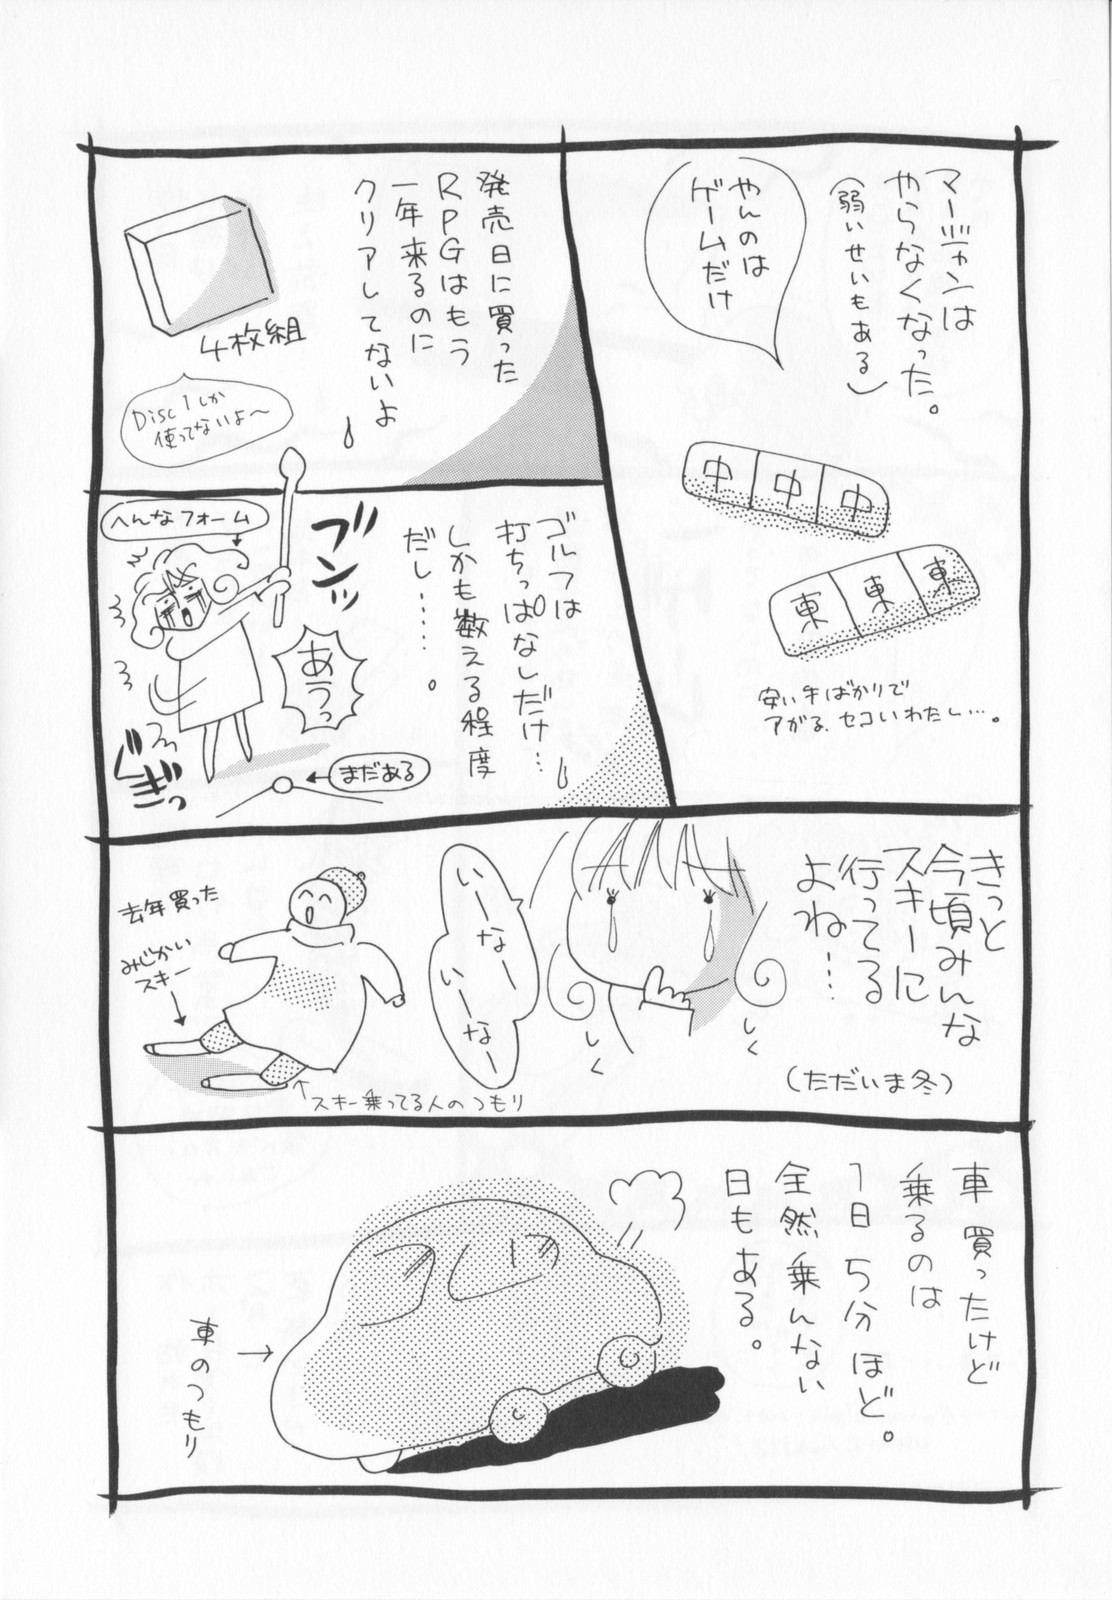 マージャンは
やらなくなった。
(弱いせいもある)
やんのは
ゲームだけ
中
中
中
東
東
東
安い手ばかりで
アガる、セコいわたし…。
発売日に買った
RPGはもう
一年来るのに
クリアしてないよ
4枚組
Disc 1しか
使ってないよ〜
ゴルフは
打ちっぱなしだけ…
しかも数える程度
だし……。
ブンッ
へんなフォーム
あうっ
ぐぎっ
まだある
きっと
今頃みんな
スキーに
行ってる
よね…
(ただいま冬)
しく
しく
いーなー
いーなー
去年買った
みじかい
スキー
スキー乗ってる人のつもり
車買ったけど
乗るのは
1日5分ほど。
全然乗んない
日もある。
車のつもり